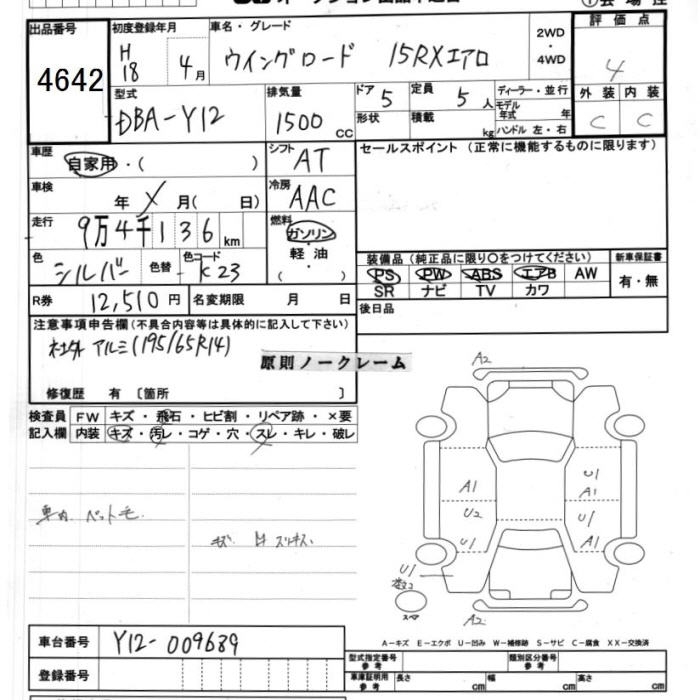 オークション出品申込書
出品番号 4642
初度登録年月 H18年 4月
車名・グレード ウイングロード 15RXエアロ
2WD・4WD
評価点 4
外装 C 内装 C
型式 DBA-Y12
排気量 1500 CC
ドア 5 形状
定員 5人 積載 kg
ディーラー・並行
モデル年式 年
ハンドル 左・右
車歴 自家用・( )
シフト AT
セールスポイント (正常に機能するものに限ります)
車検 年 X 月( 日)
冷房 AAC
走行 9万4千136km
燃料 ガソリン・軽油・( )
色 シルバー 色替 色コード K23
装備品 (純正品に限り〇をつけてください) 新車保証書
PS PW ABS エアB AW 有・無
SR ナビ TV カワ
R券 12,510円 名変期限 月 日
後日品
注意事項申告欄 (不具合内容等は具体的に記入して下さい)
社外 アルミ(195/65R14)
原則ノークレーム
修復歴 有 〔箇所 〕
検査員 FW キズ・飛石・ヒビ割・リペア跡・×要
記入欄 内装 キズ・汚レ・コゲ・穴・スレ・キレ・破レ
車内 ペット毛
キズ
A2
A1
U2
U1
U1
A1
U1
A1
U1
スペア
A2
A-キズ E-エクボ U-凹み W-補修跡 S-サビ C-腐食 XX-交換済
車台番号 Y12-009689
登録番号
型式指定番号 参考 類別区分番号 参考
車庫証明用 参考 長さ cm 幅 cm 高さ cm